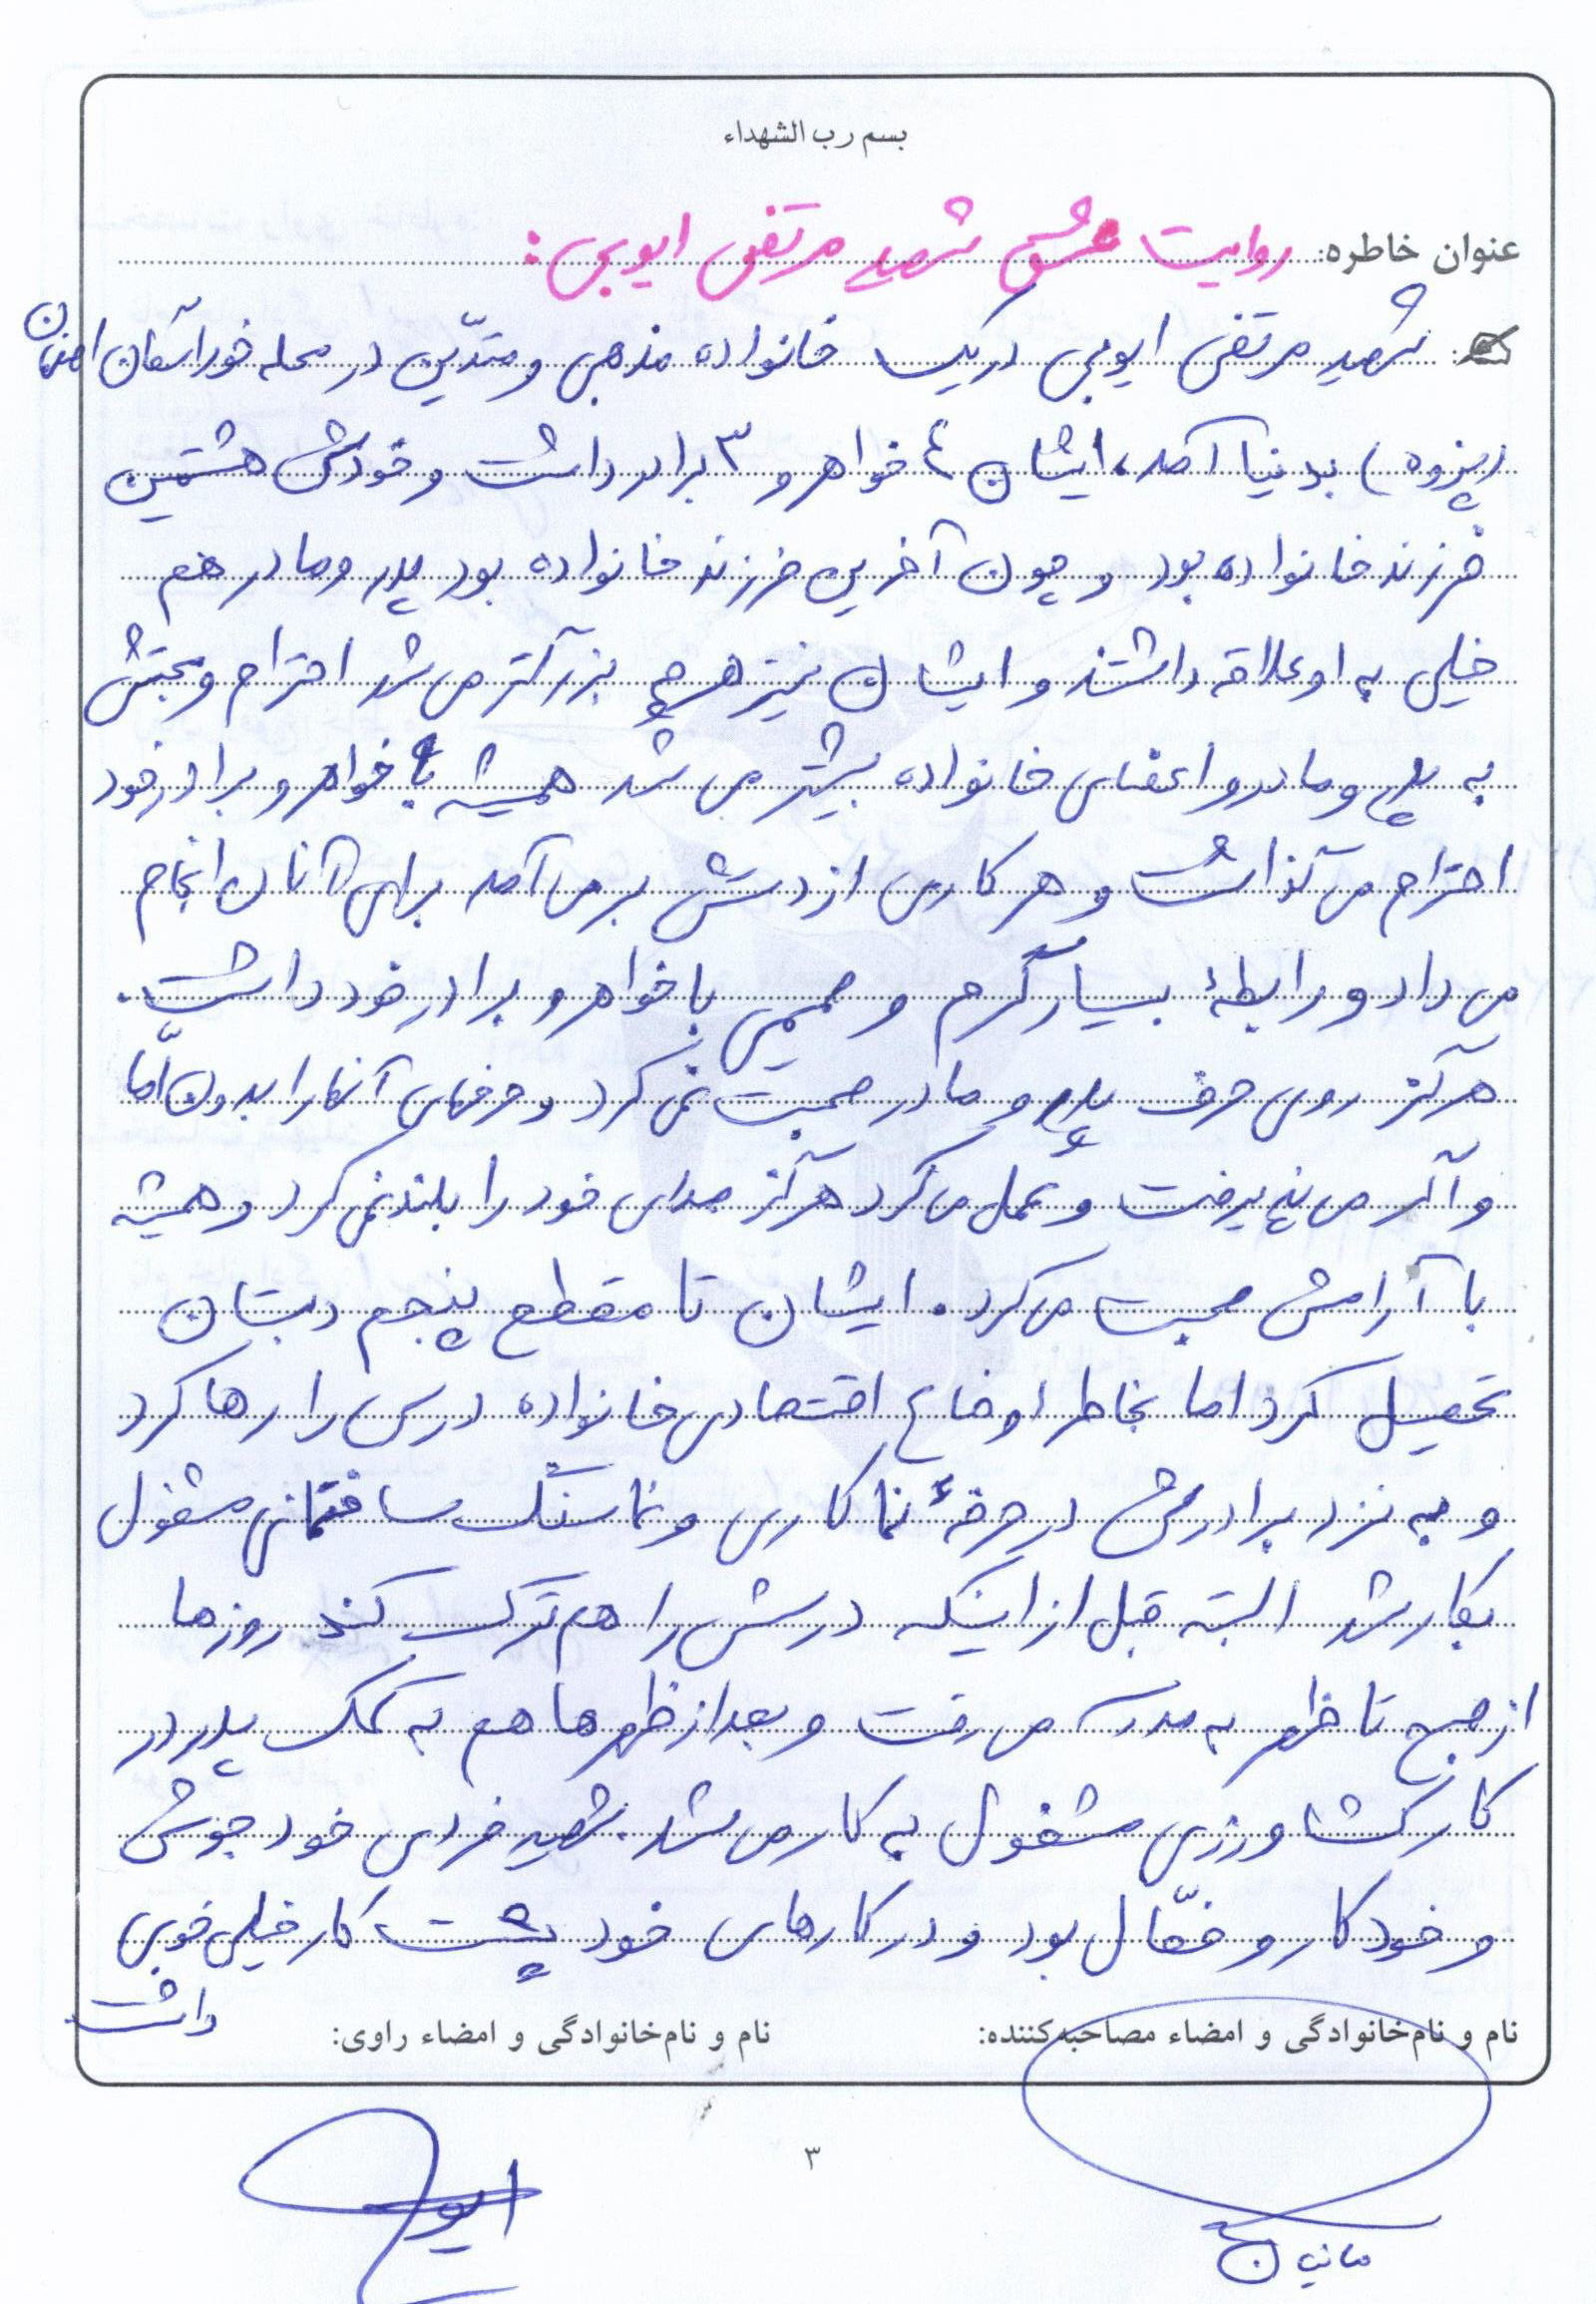 بسم رب الشهداء
عنوان خاطره: روایت عشق شهید مرتضی ایوبی:
شهید مرتضی ایوبی در یک خانواده مذهبی و متدّین در محله خوراسگان اصفهان
(پزوه) بدنیا آمد، ایشان ٤ خواهر و ٣ برادر داشت و خودش هشتمین
فرزند خانواده بود و چون آخرین فرزند خانواده بود پدر و مادر هم
خیلی به او علاقه داشتند و ایشان نیز هرچه بزرگتر می شد احترام و محبتش
به پدر و مادر و اعضای خانواده بیشتر می شد همیشه با خواهر و برادر خود
احترام می گذاشت و هر کاری از دستش بر می آمد برای آنان انجام
می داد و رابطهٔ بسیار گرم و صمیمی با خواهر و برادر خود داشت.
هرگز روی حرف پدر و مادر صحبت نمی کرد و حرفهای آنها را بدون امّا
و اگر می پذیرفت و عمل می کرد هرگز صدای خود را بلند نمی کرد و همیشه
با آرامش صحبت می کرد. ایشان تا مقطع پنجم دبستان
تحصیل کرد اما بخاطر اوضاع اقتصادی خانواده درس را رها کرد
و به نزد برادرش در حرفهٔ نماکاری و نما سنگ ساختمانی مشغول
بکار شد البته قبل از اینکه درسش را هم ترک کند روزها
از صبح تا ظهر به مدرسه می رفت و بعد از ظهرها هم به کمک پدر در
کار کشاورزی مشغول به کار می شد. شهید فردی خود جوش
و خود کار و فعّال بود و در کارهای خود پشت کار خیلی خوبی
داشت
نام و نام‌خانوادگی و امضاء مصاحبه‌کننده:
نام و نام‌خانوادگی و امضاء راوی:
٣
ایوبی